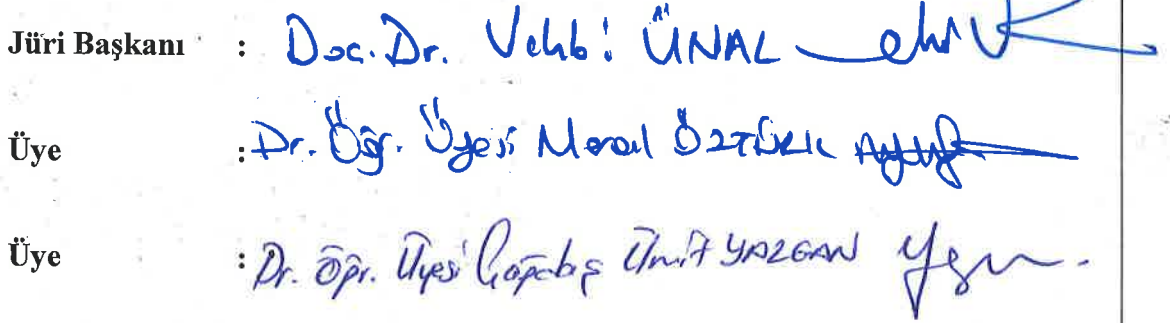 Jüri Başkanı : Doc. Dr. Vehbi ÜNAL
Üye : Dr. Öğr. Üyesi Meral ÖZTÜRK
Üye : Dr. Öğr. Üyesi Çağatay Ümit YAZGAN